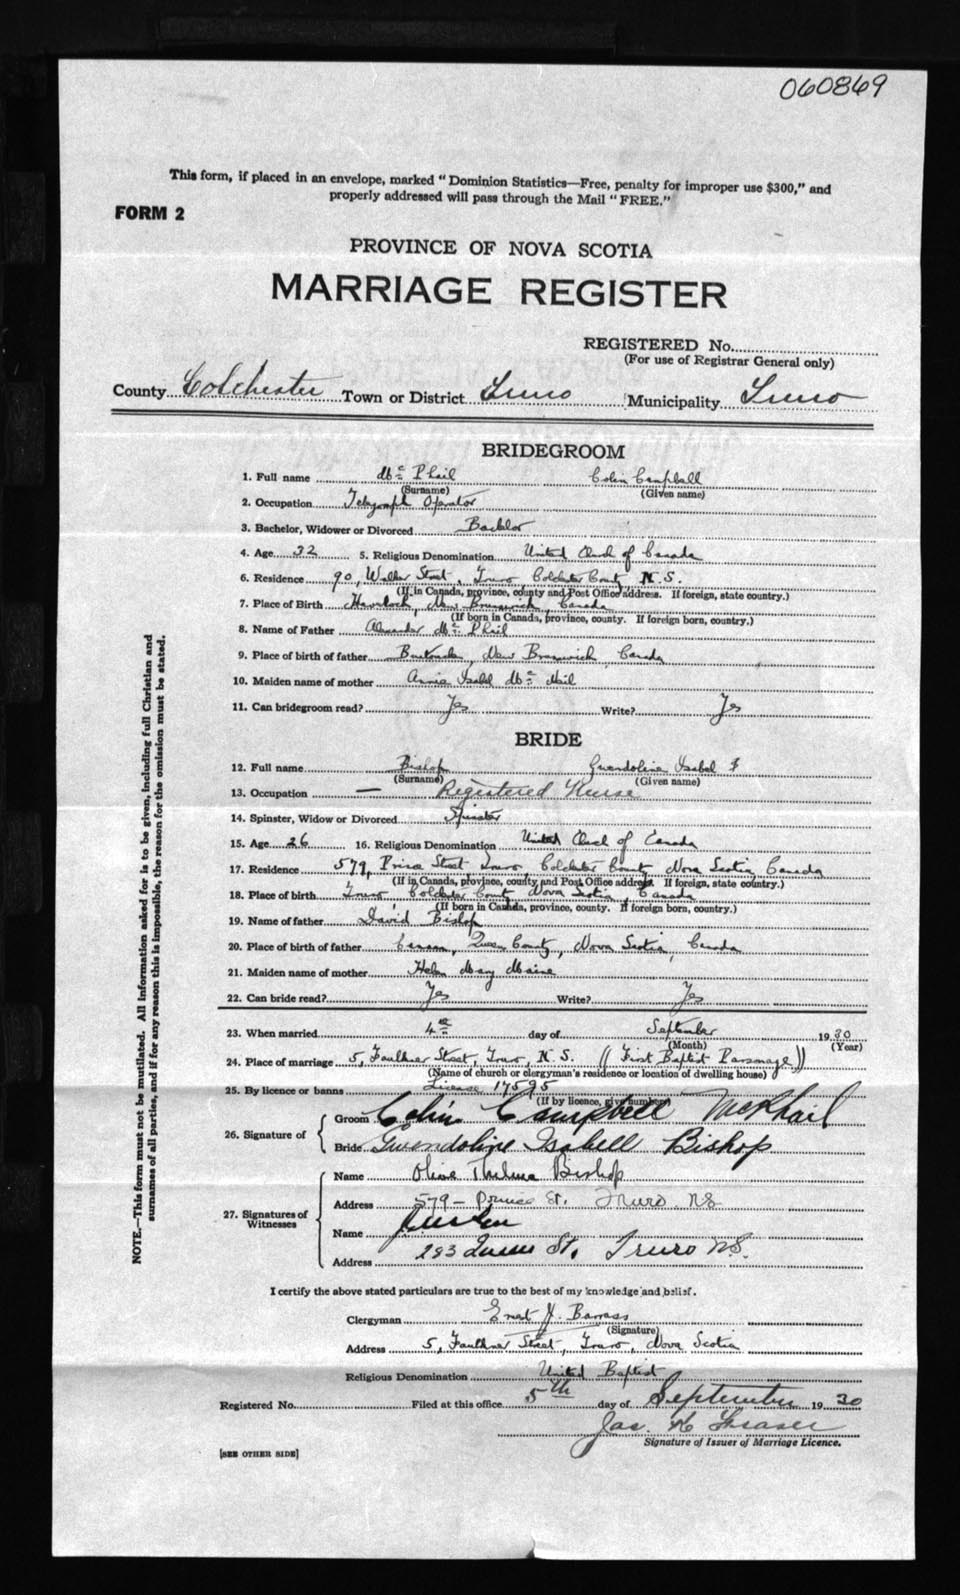 060869
This form, if placed in an envelope, marked "Dominion Statistics—Free, penalty for improper use $300," and
properly addressed will pass through the Mail "FREE."
FORM 2
PROVINCE OF NOVA SCOTIA
MARRIAGE REGISTER
REGISTERED No.
(For use of Registrar General only)
County Colchester Town or District Truro Municipality Truro
BRIDEGROOM
1. Full name Mc Phail Colin Campbell
(Surname) (Given name)
2. Occupation Telegraph Operator
3. Bachelor, Widower or Divorced Bachlor
4. Age 32 5. Religious Denomination United Church of Canada
6. Residence 90, Walker Street, Truro, Colchester County N.S.
(If in Canada, province, county and Post Office address. If foreign, state country.)
7. Place of Birth Havelock, New Brunswick, Canada
(If born in Canada, province, county. If foreign born, country.)
8. Name of Father Alexander Mc Phail
9. Place of birth of father Buctouche, New Brunswick, Canada
10. Maiden name of mother Annie Isabel Mc Neil
11. Can bridegroom read? Yes Write? Yes
BRIDE
12. Full name Bishop Gwendoline Isabel
(Surname) (Given name)
13. Occupation — Registered Nurse
14. Spinster, Widow or Divorced Spinster
15. Age 26 16. Religious Denomination United Church of Canada
17. Residence 579, Prince Street Truro, Colchester County, Nova Scotia, Canada
(If in Canada, province, county and Post Office address. If foreign, state country.)
18. Place of birth Truro, Colchester County Nova Scotia, Canada
(If born in Canada, province, county. If foreign born, country.)
19. Name of father David Bishop
20. Place of birth of father Queens County, Nova Scotia, Canada
21. Maiden name of mother Helen May
22. Can bride read? Yes Write? Yes
23. When married 4th day of September 1930
(Month) (Year)
24. Place of marriage 5, Faulkner Street, Truro, N.S. ((First Baptist Parsonage))
(Name of church or clergyman's residence or location of dwelling house)
25. By licence or banns License 17595
(If by licence, give number)
26. Signature of
Groom Colin Campbell McPhail
Bride Gwendoline Isabell Bishop
27. Signatures of Witnesses
Name Olive Thelma Bishop
Address 579 – Prince St. Truro NS
Name
Address 283 Queen St. Truro N.S.
I certify the above stated particulars are true to the best of my knowledge and belief.
Clergyman Ernest J. Barrass
(Signature)
Address 5, Faulkner Street, Truro, Nova Scotia
Religious Denomination United Baptist
Registered No. Filed at this office 5th day of September 1930
Jas. K Fraser
Signature of Issuer of Marriage Licence.
[SEE OTHER SIDE]
NOTE.—This form must not be mutilated. All information asked for is to be given, including full Christian and
surnames of all parties, and if for any reason this is impossible, the reason for the omission must be stated.